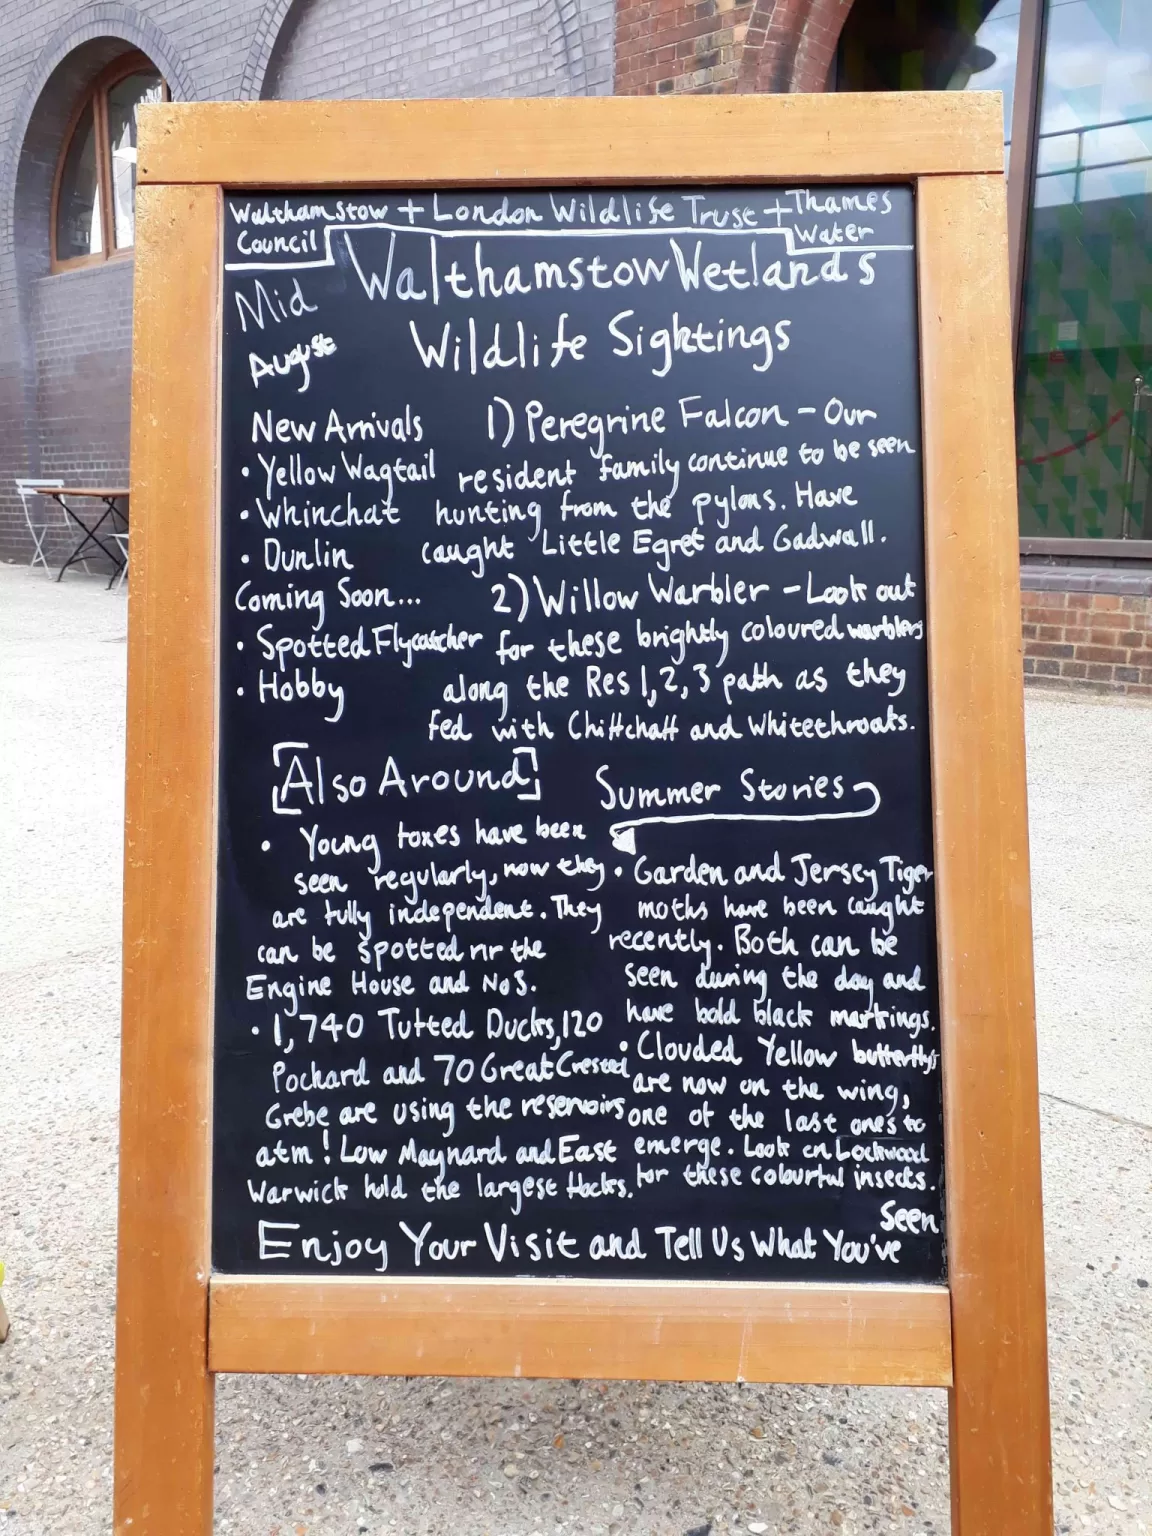 Walthamstow + London Wildlife Trust + Thames
Council Water
Mid Walthamstow Wetlands
August Wildlife Sightings
New Arrivals
• Yellow Wagtail
• Whinchat
• Dunlin
Coming Soon...
• Spotted Flycatcher
• Hobby
1) Peregrine Falcon - Our
resident family continue to be seen
hunting from the pylons. Have
caught Little Egret and Gadwall.
2) Willow Warbler - Look out
for these brightly coloured warblers
along the Res 1, 2, 3 path as they
fed with Chiffchaff and Whitethroats.
[Also Around]
• Young foxes have been
seen regularly, now they
are fully independent. They
can be spotted nr the
Engine House and No5.
• 1,740 Tufted Ducks, 120
Pochard and 70 Great Crested
Grebe are using the reservoirs
atm! Low Maynard and East
Warwick hold the largest flocks.
Summer Stories
• Garden and Jersey Tiger
moths have been caught
recently. Both can be
seen during the day and
have bold black markings.
• Clouded Yellow butterflys
are now on the wing,
one of the last ones to
emerge. Look on Lockwood
for these colourful insects.
Enjoy Your Visit and Tell Us What You've
Seen